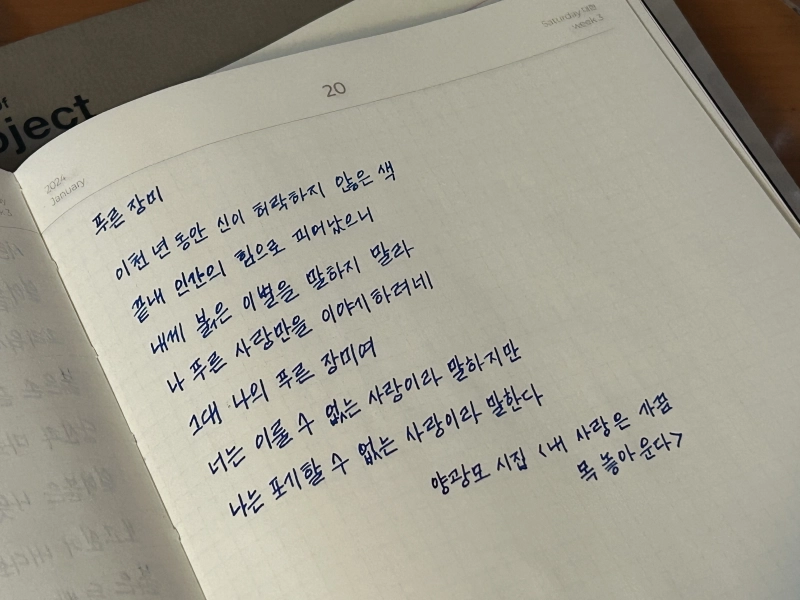 oject
2024
January
20
Saturday 대한
week 3
푸른 장미
이천 년 동안 신이 허락하지 않은 색
끝내 인간의 힘으로 피어났으니
내게 붉은 이별을 말하지 말라
나 푸른 사랑만을 이야기하려네
그대 나의 푸른 장미여
너는 이룰 수 없는 사랑이라 말하지만
나는 포기할 수 없는 사랑이라 말한다
양광모 시집 <내 사랑은 가끔
목 놓아 운다>